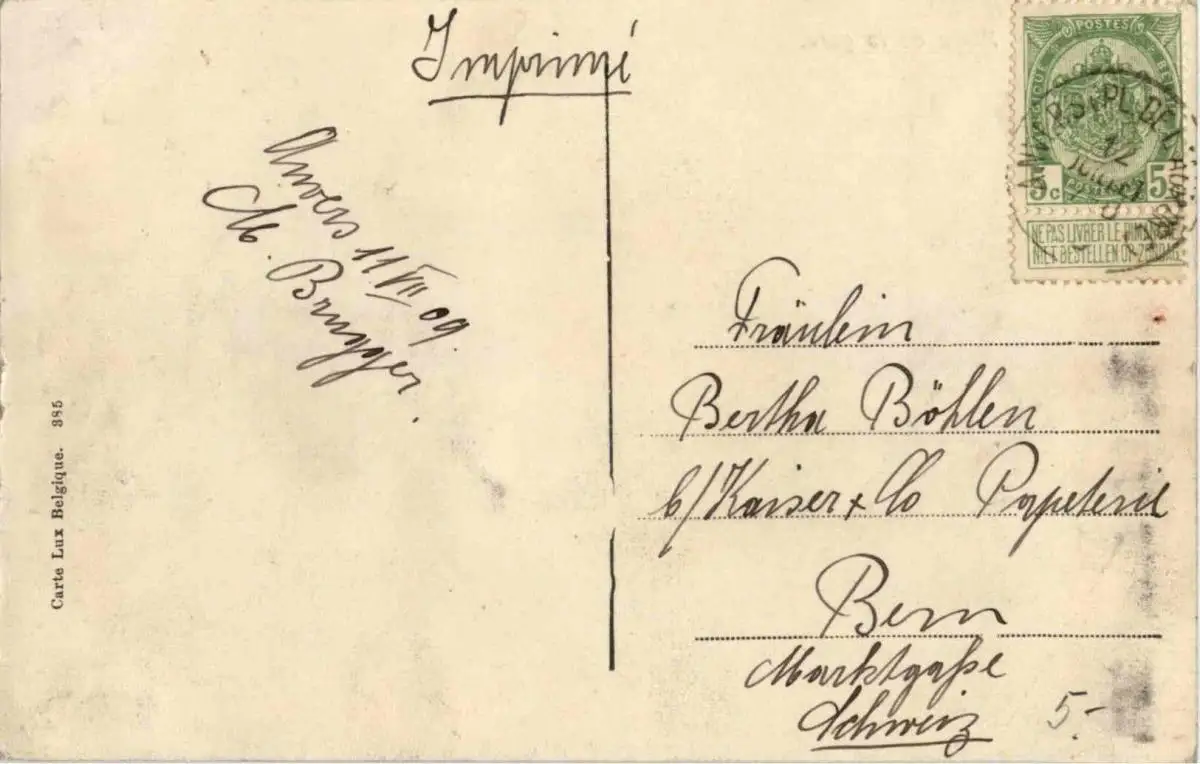 Imprimé
Anvers 11 VII 09.
M. Brugger.
Carte Lux Belgique. 385
POSTES
5c 5
NE PAS LIVRER LE DIMANCHE
NIET BESTELLEN OP ZONDAG
Fräulein
Bertha Böhlen
b/ Kaiser & Co Papeterie
Bern
Marktgaße
Schweiz
5.-